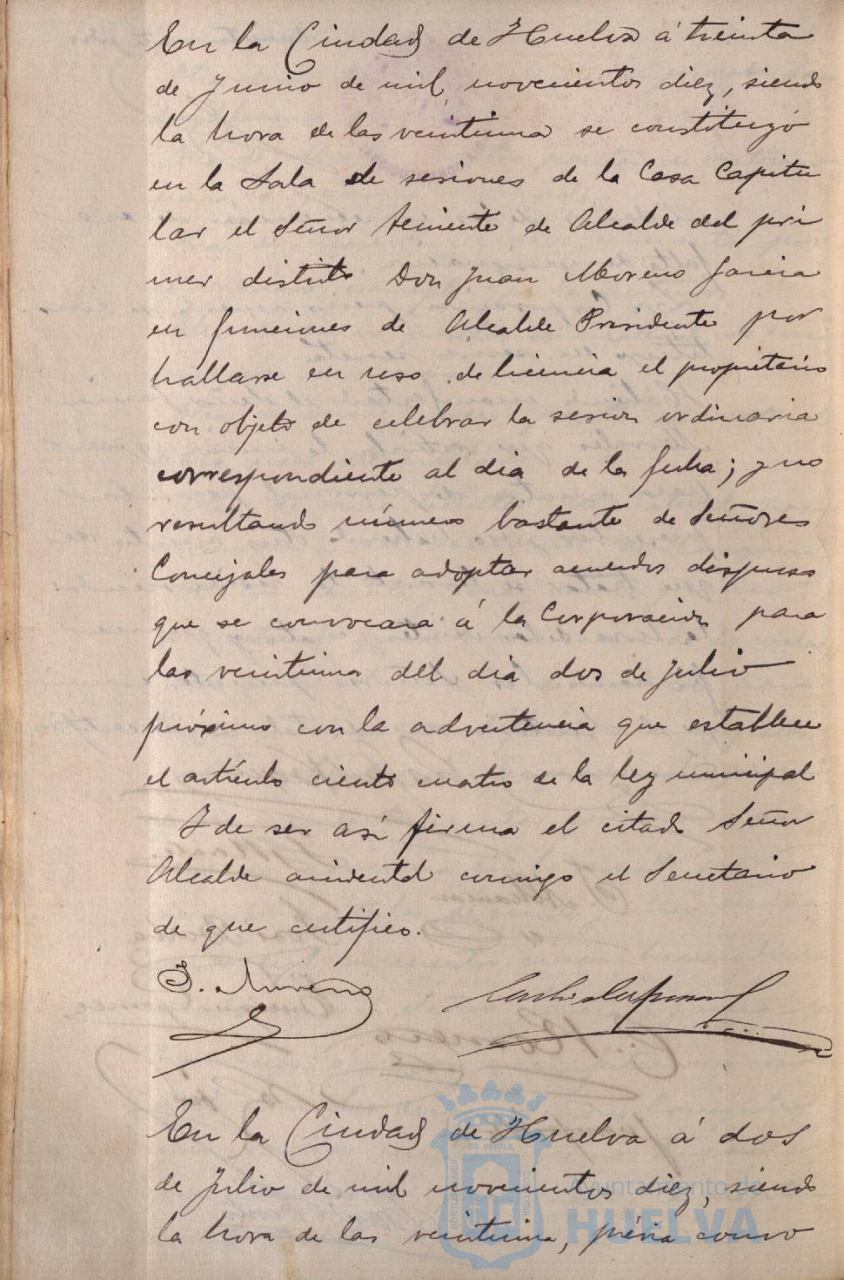 En la Ciudad de Huelva á treinta
de Junio de mil novecientos diez, siendo
la hora de las veintiuna se constituyó
en la Sala de sesiones de la Casa Capitu
lar el Señor Teniente de Alcalde del pri
mer distrito Don Juan Moreno García
en funciones de Alcalde Presidente por
hallarse en uso de licencia el propietario
con objeto de celebrar la sesion ordinaria
correspondiente al dia de la fecha; y no
resultando número bastante de Señores
Concejales para adoptar acuerdos dispuso
que se convocara á la Corporación para
las veintiuna del dia dos de Julio
próximo con la advertencia que establece
el artículo ciento cuatro de la ley municipal
Y de ser así firma el citado Señor
Alcalde accidental conmigo el Secretario
de que certifico.
J. Moreno
En la Ciudad de Huelva á dos
de Julio de mil novecientos diez, siendo
la hora de las veintiuna, prévia convo
Ayuntamiento de
HUELVA